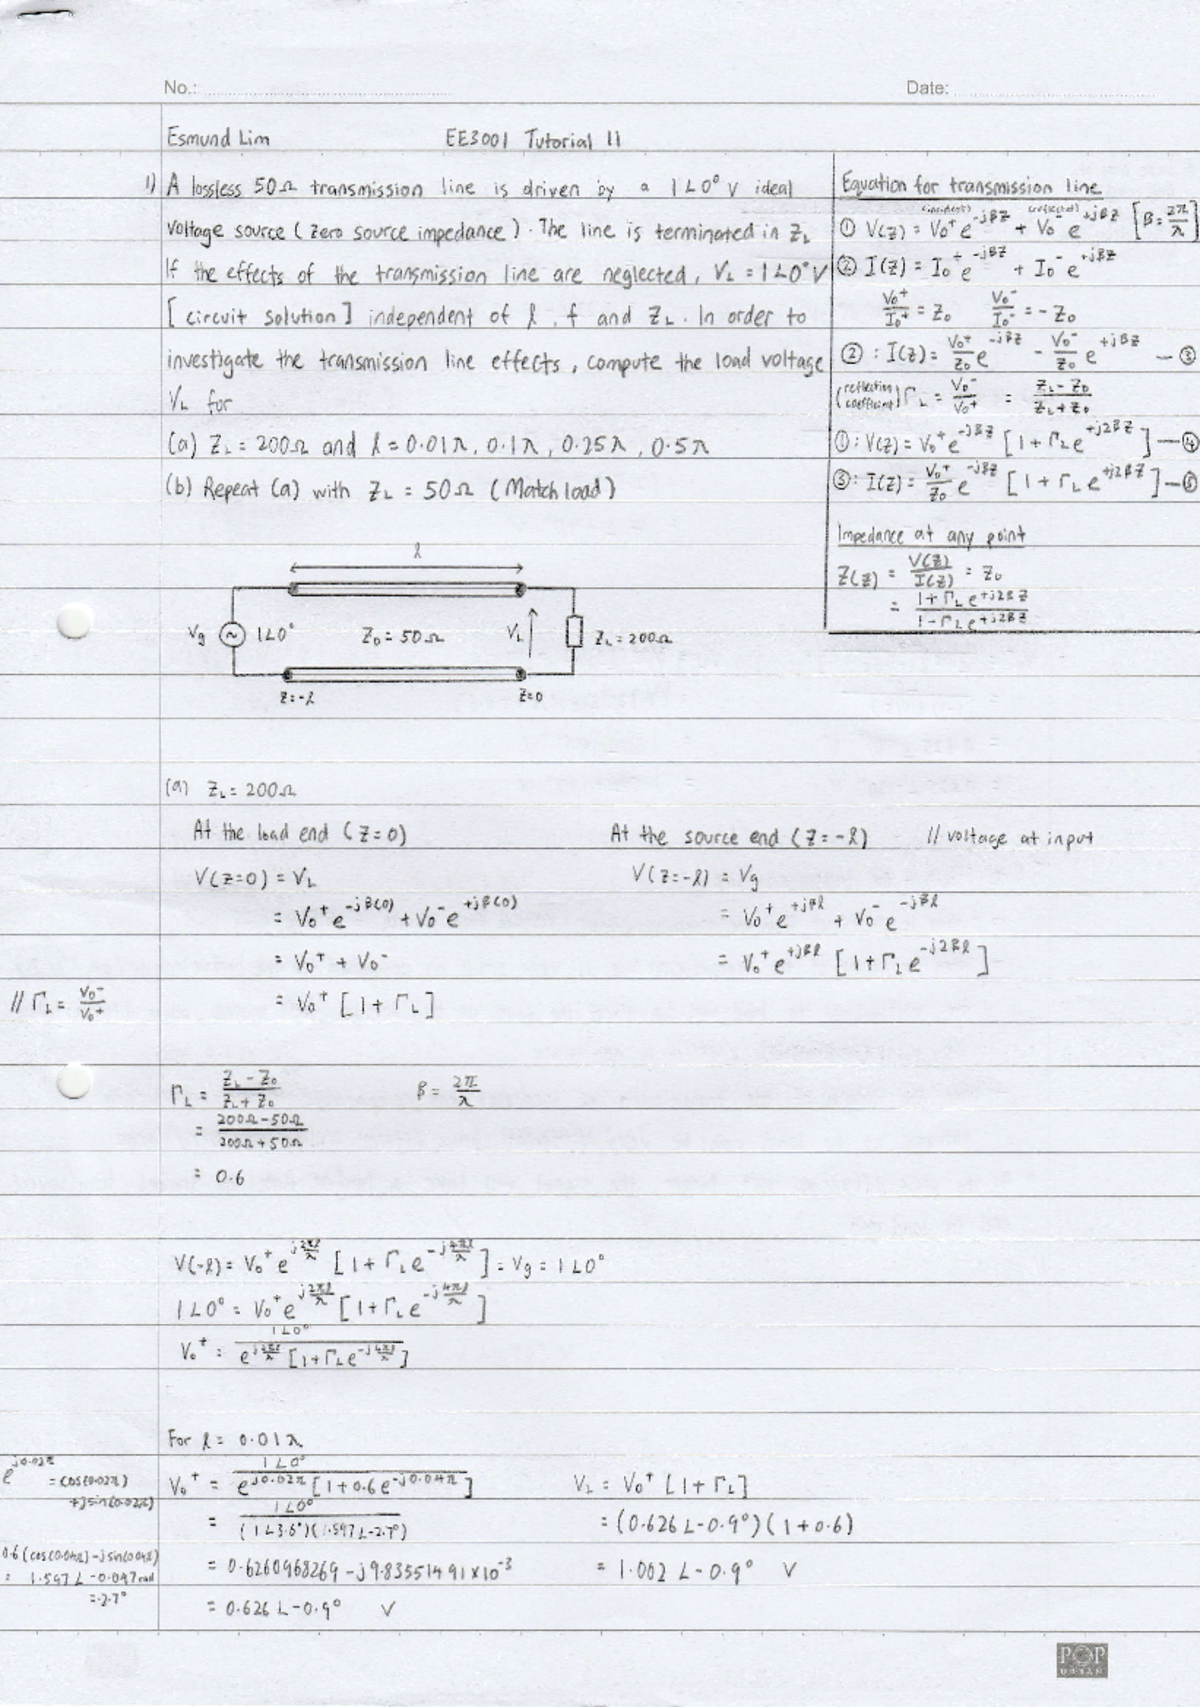 No.:
Date:
Esmund Lim EE3001 Tutorial 11
1) A lossless 50Ω transmission line is driven by a 1∠0° V ideal
voltage source (zero source impedance). The line is terminated in Z_L
If the effects of the transmission line are neglected, V_L = 1∠0° V
[circuit solution] independent of l, f and Z_L. In order to
investigate the transmission line effects, compute the load voltage
V_L for
(a) Z_L = 200Ω and l = 0.01λ, 0.1λ, 0.25λ, 0.5λ
(b) Repeat (a) with Z_L = 50Ω (Match load)
Equation for transmission line
(incident) (reflected)
① V(z) = V₀⁺e^-jβz + V₀⁻e^+jβz [β = 2π/λ]
② I(z) = I₀⁺e^-jβz + I₀⁻e^+jβz
V₀⁺/I₀⁺ = Z₀ V₀⁻/I₀⁻ = -Z₀
② : I(z) = V₀⁺/Z₀ e^-jβz - V₀⁻/Z₀ e^+jβz — ③
(reflection coefficient) Γ_L = V₀⁻/V₀⁺ = (Z_L - Z₀)/(Z_L + Z₀)
① : V(z) = V₀⁺e^-jβz [1 + Γ_L e^+j2βz] — ④
③ : I(z) = V₀⁺/Z₀ e^-jβz [1 + Γ_L e^+j2βz] — ⑤
Impedance at any point
Z(z) = V(z)/I(z) = Z₀
= (1 + Γ_L e^+j2βz)/(1 - Γ_L e^+j2βz)
l
Vg 1∠0° Z₀ = 50Ω V_L Z_L = 200Ω
z=-l z=0
(a) Z_L = 200Ω
At the load end (z=0)
V(z=0) = V_L
= V₀⁺e^-jβ(0) + V₀⁻e^+jβ(0)
= V₀⁺ + V₀⁻
// Γ_L = V₀⁻/V₀⁺
= V₀⁺ [1 + Γ_L]
At the source end (z=-l) // voltage at input
V(z=-l) = Vg
= V₀⁺e^+jβl + V₀⁻e^-jβl
= V₀⁺e^+jβl [1 + Γ_L e^-j2βl]
Γ_L = (Z_L - Z₀)/(Z_L + Z₀) β = 2π/λ
= (200Ω - 50Ω)/(200Ω + 50Ω)
= 0.6
V(-l) = V₀⁺e^j2πl/λ [1 + Γ_L e^-j4πl/λ] = Vg = 1∠0°
1∠0° = V₀⁺e^j2πl/λ [1 + Γ_L e^-j4πl/λ]
V₀⁺ = 1∠0°/(e^j2πl/λ [1 + Γ_L e^-j4πl/λ])
For l = 0.01λ
e^j0.02π = cos(0.02π) + jsin(0.02π)
V₀⁺ = 1∠0°/(e^j0.02π [1 + 0.6e^-j0.04π])
= 1∠0°/((1∠3.6°)(1.597∠-2.7°))
0.6(cos(0.04π) - jsin(0.04π)
= 1.597∠-0.047rad
= -2.7°
= 0.6260968269 - j9.83551491×10⁻³
= 0.626∠-0.9° V
V_L = V₀⁺ [1 + Γ_L]
= (0.626∠-0.9°)(1 + 0.6)
= 1.002∠-0.9° V
POP
URBAN